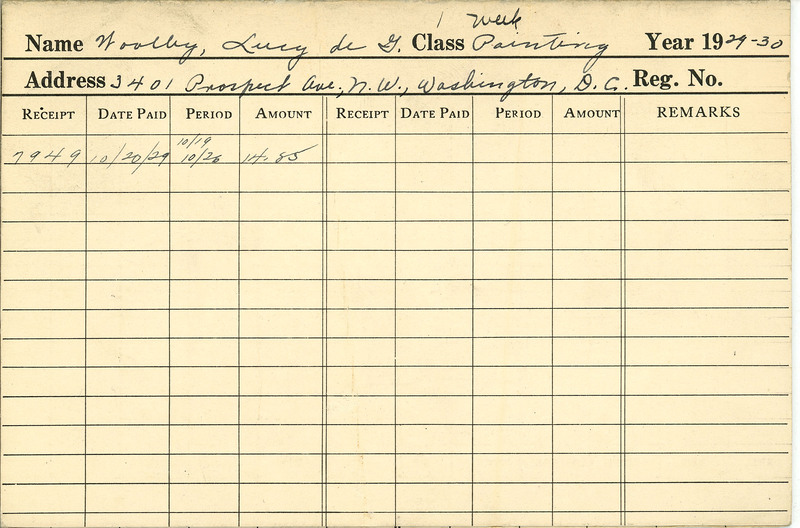 1 Week
Name Woolby, Lucy de G. Class Painting Year 1929-30
Address 3401 Prospect Ave., N.W., Washington, D.C. Reg. No.
RECEIPT DATE PAID PERIOD AMOUNT RECEIPT DATE PAID PERIOD AMOUNT REMARKS
10/19
7949 10/20/29 10/26 14.85